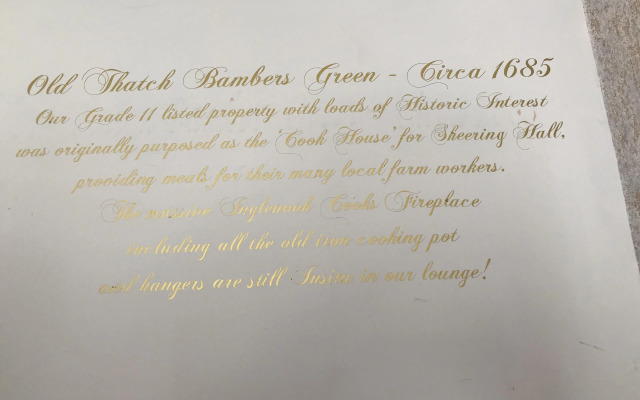 Old Thatch Bambers Green - Circa 1685
Our Grade 11 listed property with loads of Historic Interest
was originally purposed as the 'Cook House' for Sheering Hall,
providing meals for their many local farm workers.
The massive Inglenook Cooks Fireplace
including all the old iron cooking pot
and hangers are still Insitu in our lounge!